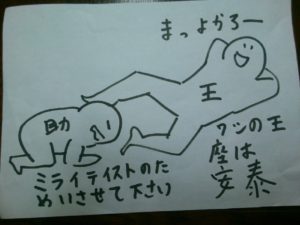 まっよかろー
王
助
ワシの王
座は
安泰
ミライテイストのた
めいさせて下さい